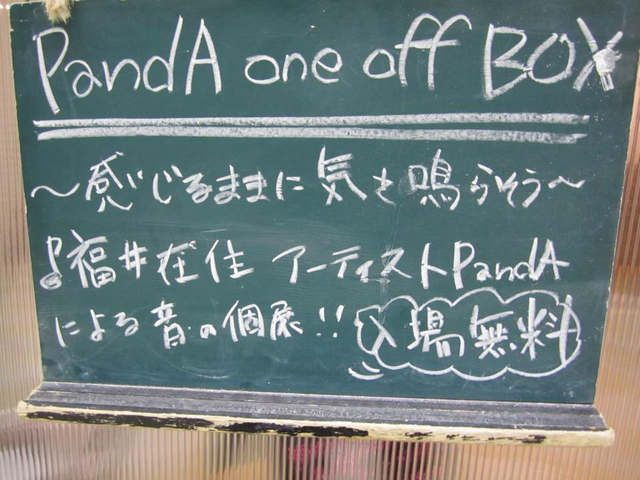 PandA one off BOX
～感じるままに気を鳴らそう～
♪福井在住 アーティストPandA
による音の個展!! 入場無料